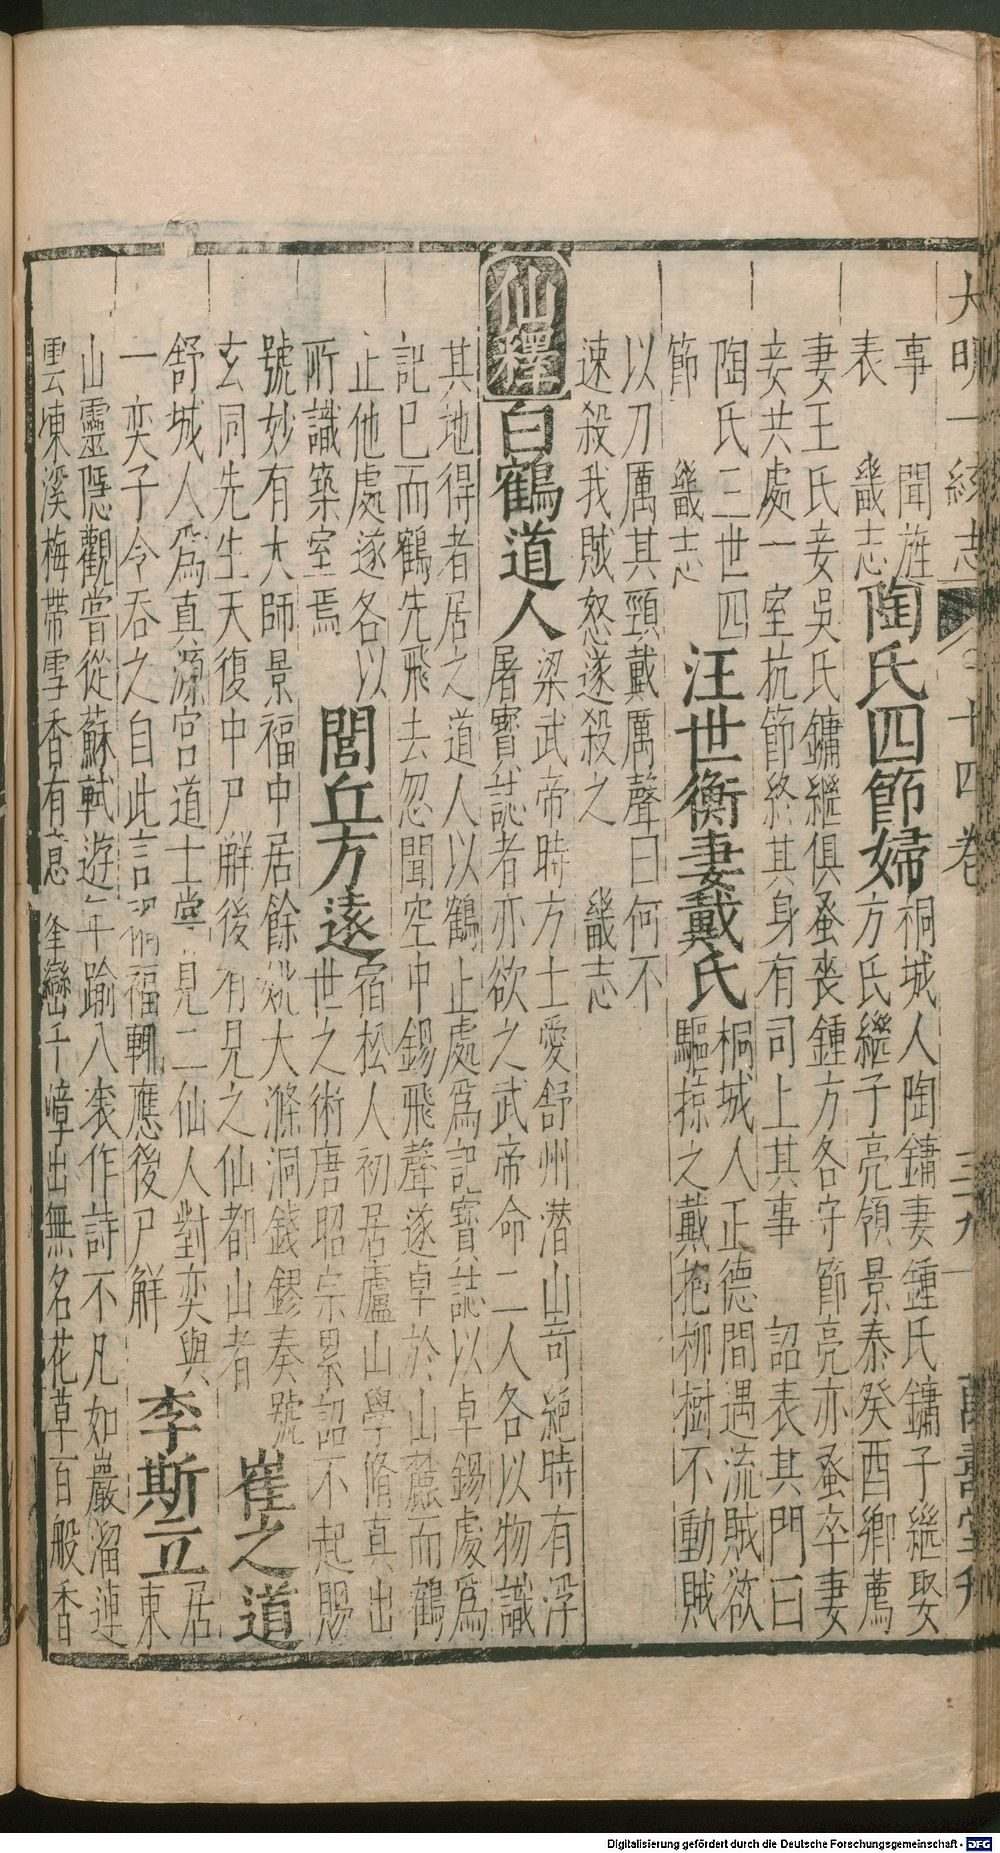 大明一統志 十四卷 三九 萬壽堂刊
事 聞旌 陶氏四節婦 桐城人陶鏞妻鍾氏鏞子繼娶
表 畿志 方氏繼子亮領景泰癸酉鄉薦
妻王氏妾吳氏鏞繼俱蚤喪鍾方各守節亮亦蚤卒妻
妾共處一室抗節終其身有司上其事 詔表其門曰
陶氏三世四 汪世衡妻戴氏 桐城人正德間遇流賊欲
節 畿志 驅掠之戴抱柳樹不動賊
以刀厲其頸戴厲聲曰何不
速殺我賊怒遂殺之 畿志
仙釋 白鶴道人 梁武帝時方士愛舒州潛山奇絕時有浮
屠寶誌者亦欲之武帝命二人各以物識
其地得者居之道人以鶴止處為記寶誌以卓錫處為
記已而鶴先飛去忽聞空中錫飛聲遂卓於山麓而鶴
止他處遂各以 閭丘方遠 宿松人初居廬山學脩真出
所識築室焉 世之術唐昭宗累詔不起賜
號妙有大師景福中居餘杭大滌洞錢鏐奏號
玄同先生天復中尸解後有見之仙都山者 崔之道 居
舒城人為真源宮道士嘗見二仙人對奕與
一奕子令吞之自此言禍福輒應後尸解 李斯立 東
山靈隱觀嘗從蘇軾遊年踰八袠作詩不凡如巖溜連
雲凍溪梅帶雪香有意 峯巒千嶂出無名花草百般香
Digitalisierung gefördert durch die Deutsche Forschungsgemeinschaft - DFG